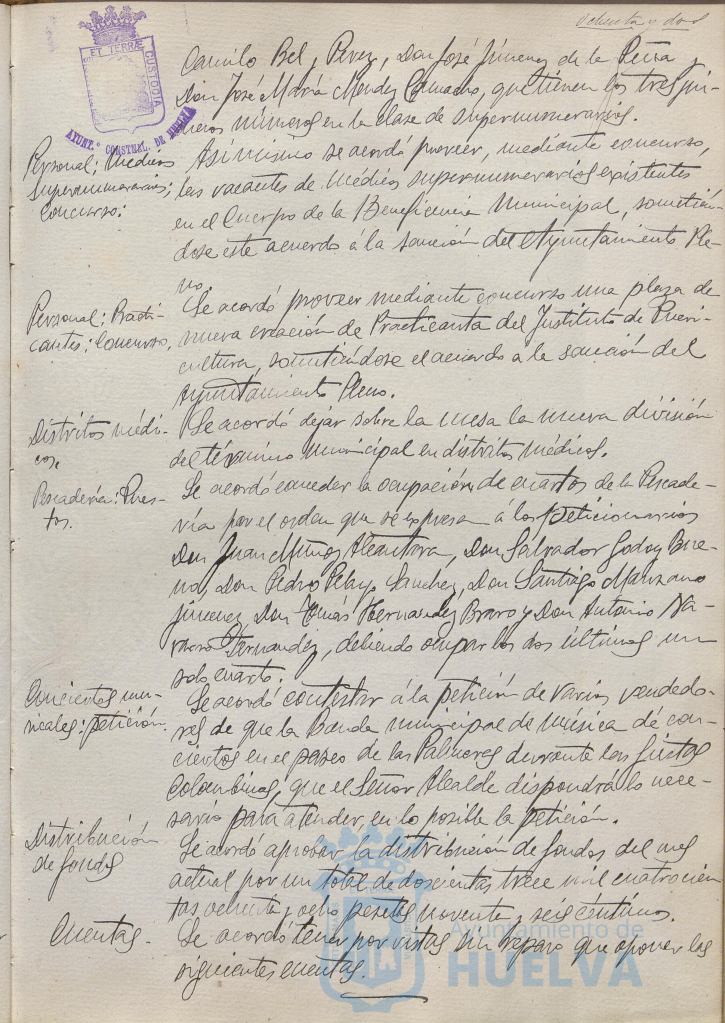 ochenta y dos
ET TERRÆ CUSTODIA
AYUNT.º CONSTNAL. DE HUELVA
Camilo Bel y Perez, Don José Jimenez de la Peña y
Don José María Mendez Camacho, que tienen los tres pri-
meros números en la clase de supernumerarios.
Personal; Médicos
Supernumerarios;
Concurso:
Asimismo se acordó proveer, mediante concurso,
las vacantes de médicos supernumerarios existentes
en el Cuerpo de la Beneficencia Municipal, sometién-
dose este acuerdo á la sanción del Ayuntamiento Ple-
no.
Personal; Practi-
cantes; Concurso,
Se acordó proveer mediante concurso una plaza de
nueva creación de Practicanta del Instituto de Pueri-
cultura, sometiéndose el acuerdo a la sanción del
Ayuntamiento Pleno.
Distritos médi-
cos,
Se acordó dejar sobre la mesa la nueva división
del término municipal en distritos médicos.
Pescadería: Pues-
tos.
Se acordó conceder la ocupación de cuartos de la Pescade-
ría por el orden que se expresa á los peticionarios
Don Juan Muñoz Alcantara, Don Salvador Godoy Bue-
no, Don Pedro Pelayo Sanchez, Don Santiago Manzano
Jimenez, Don Tomás Hernandez Bravo y Don Antonio Na-
varro Fernandez, debiendo ocupar los dos últimos un
solo cuarto.
Conciertos mu-
sicales: petición.
Se acordó contestar á la petición de varios vendedo-
res de que la Banda municipal de música dé con-
ciertos en el paseo de las Palmeras durante las fiestas
Colombinas, que el Señor Alcalde dispondrá lo nece-
sario para atender, en lo posible la petición.
Distribución
de fondos
Se acordó aprobar la distribución de fondos del mes
actual por un total de doscientas trece mil cuatrocien-
tas ochenta y ocho pesetas noventa y seis céntimos.
Cuentas.
Se acordó tener por vistas sin reparo que oponer las
siguientes cuentas.
Ayuntamiento de
HUELVA